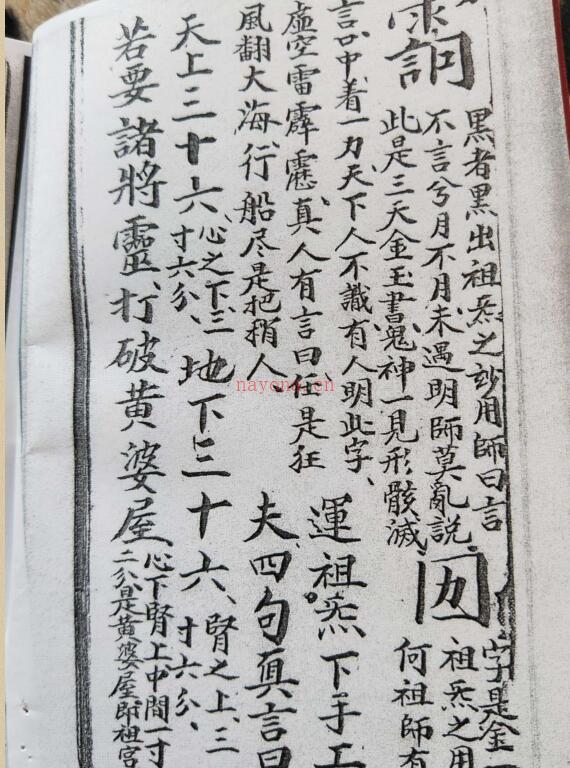 黑者黑出祖炁之妙用師曰言
不言兮月不月未遇明師莫亂說
此是三天金玉書鬼神一見形骸滅
字是金
祖炁之用
何祖師有
言口中着一力天下人不識有人明此字
虛空雷霹靂真人有言曰任是狂
風翻大海行船尽是把梢人
運祖炁下手工
夫四句真言曰
天上三十六心之下三寸六分地下三十六腎之上三寸六分
若要諸將靈打破黄婆屋心下腎上中間一寸二分是黄婆屋即祖宫
nayona.cn